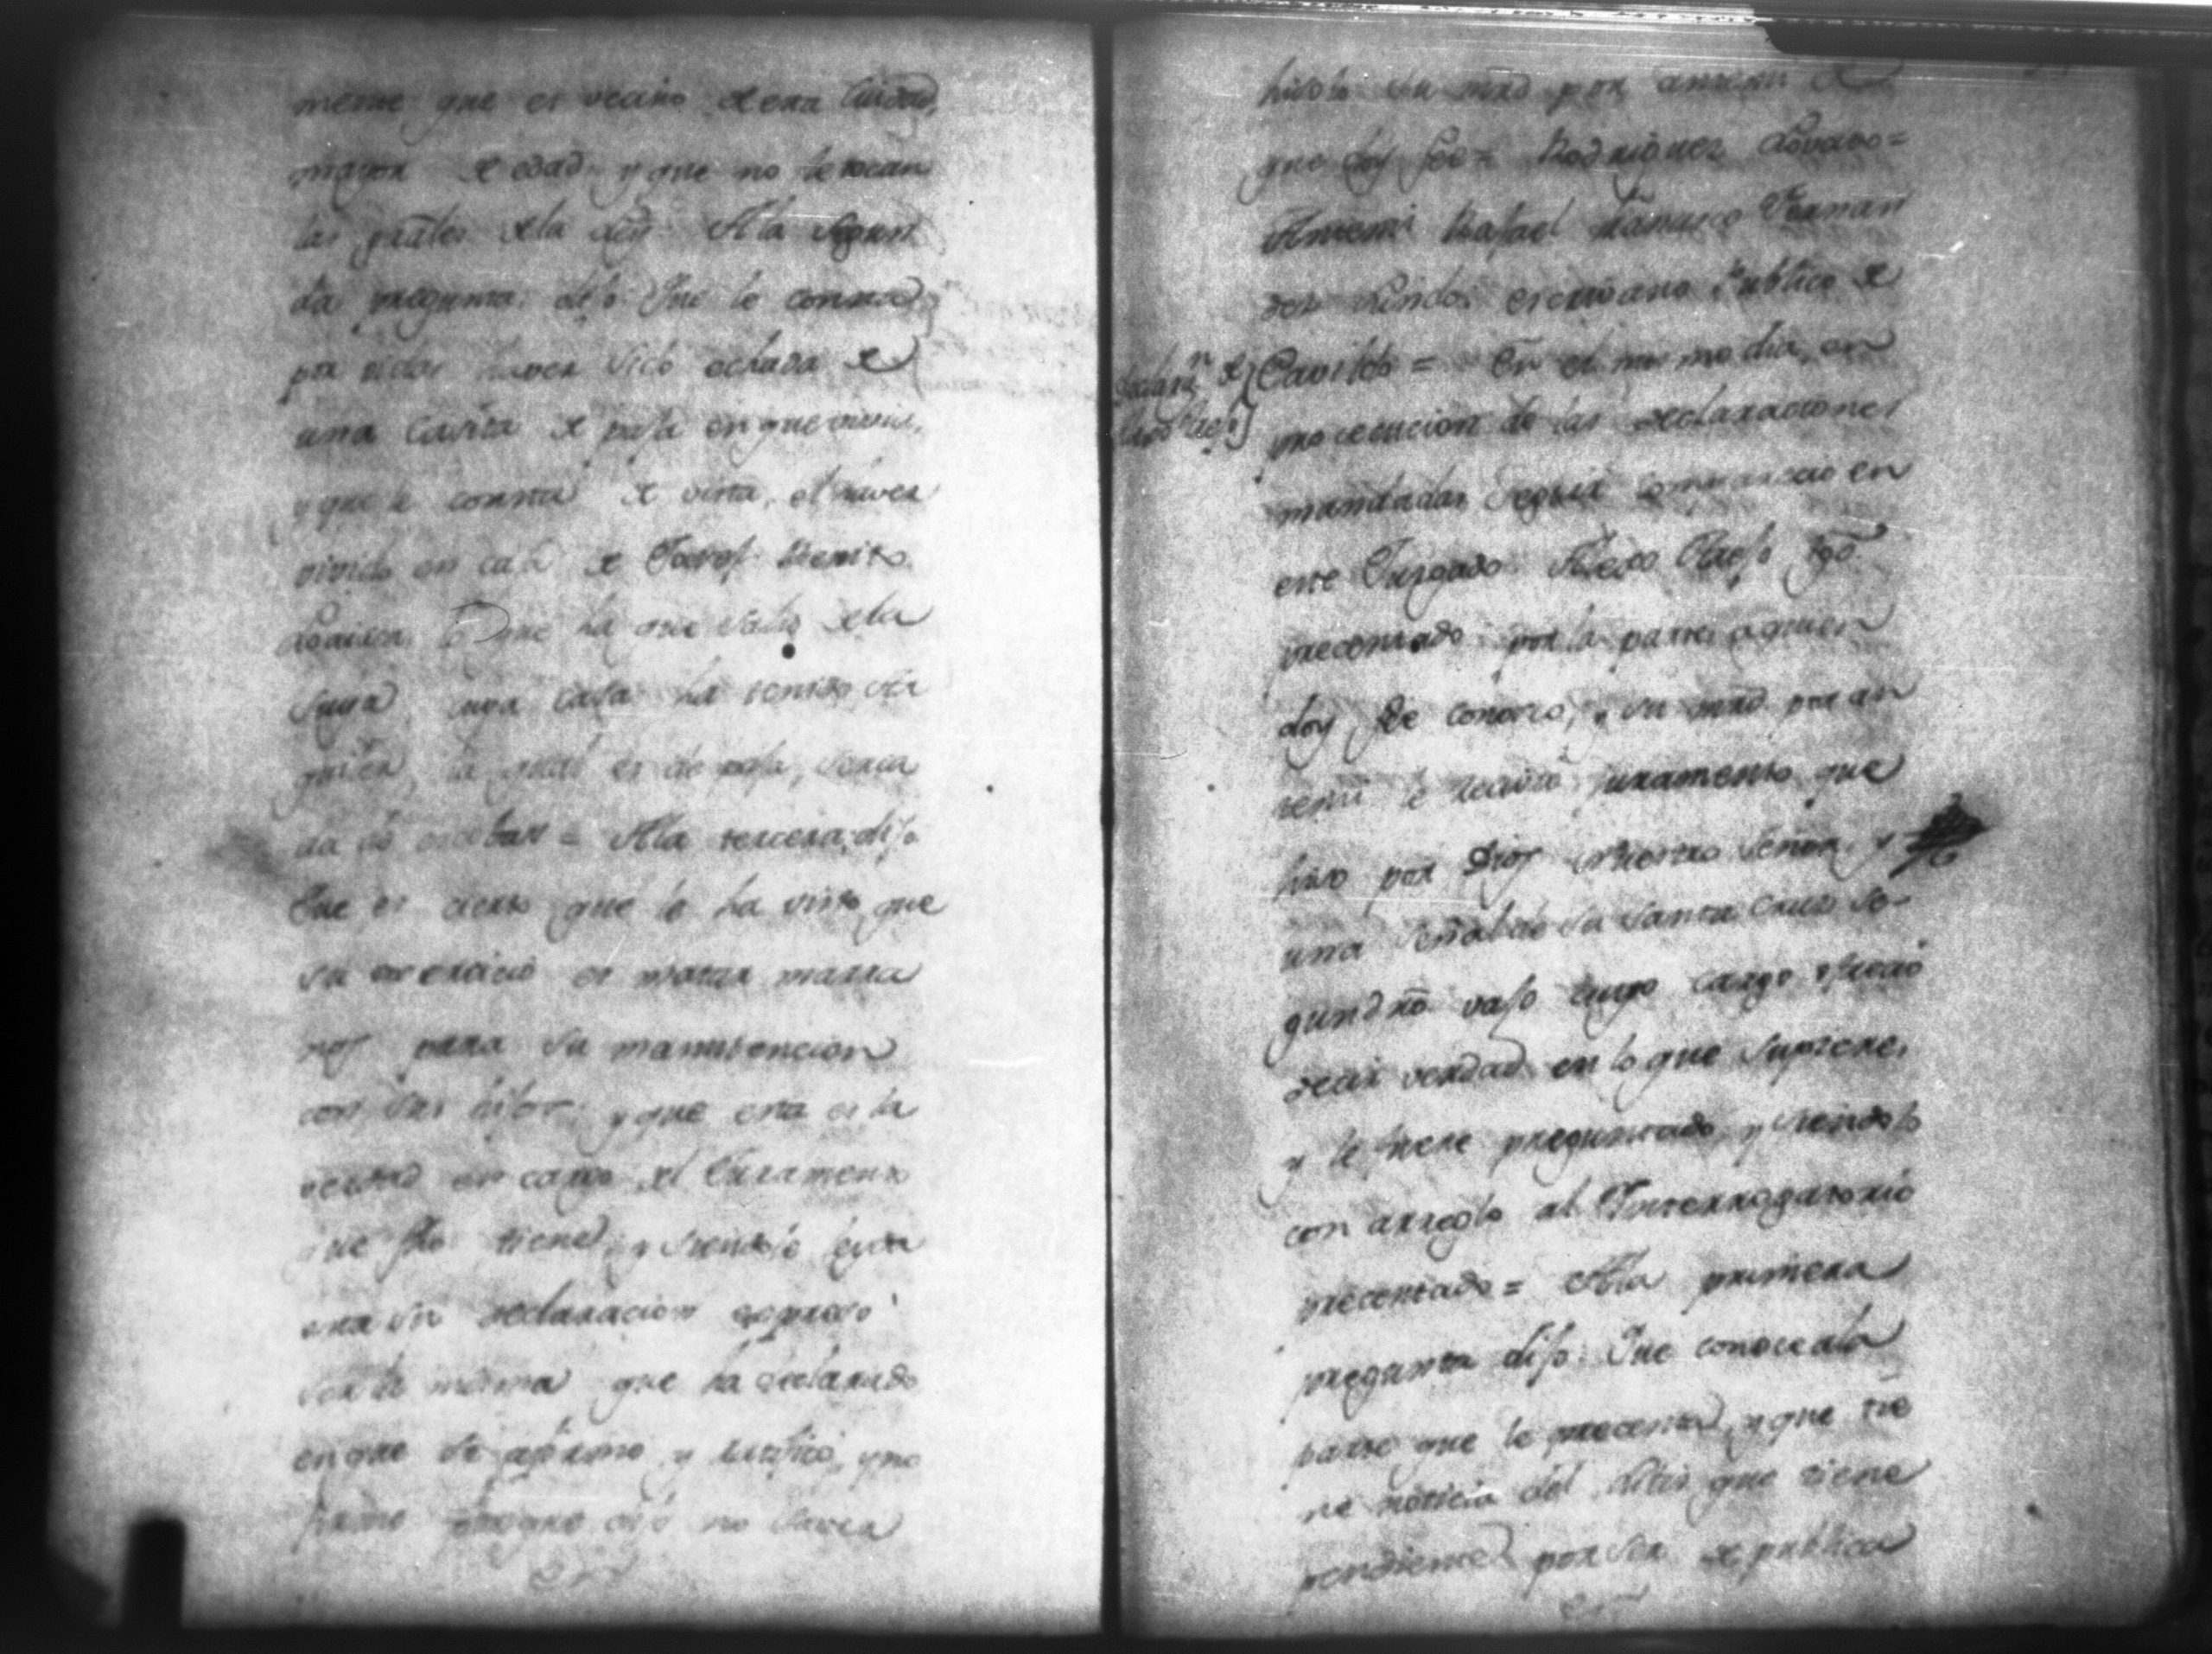 mente que es vecino de esta Ciudad,
mayor de edad y que no le tocan
las grãles de la Ley. A la segun
da pregunta dijo Que le consta
por vidas haver sido echada de
una Casita de paja en que vivia,
y que le consta de vista, el haver
vivido en casa de Josef Benito
que ha que salio de la
suya, cuya casa ha tenido
la qual es de paja, cerca
da = A la tercera dijo
Que es cierto que le ha visto que
su exercicio es matar marra
nos para su manutencion
con sus hijos y que esta es la
verdad en cargo del Juramento
que fho tiene, y siendole leyda
esta su declaracion expresó
ser la misma que ha declarado
en que se afirmo y ratificó, y no
firmo porque dijo no saver
hizolo su mrd por antemi de
que doy fee = Rodriguez Lovato =
Antemi Rafael Mariano Fernan
dez escrivano Publico de
Cavildo = En el mismo dia, en
declaran de
prosecucion de las declaraciones
mandadas seguir comparecio en
este Jurgado tgo
precentado por la parte a quien
doy fee conosco, y su mrd por an
temi le recivió juramento que
hizo por Dios Nuestro Señor y
una señal de su Santa Cruz se-
gund ño vajo cuyo cargo ofrecio
decir verdad en lo que supiere,
y le fuere preguntado, y siendolo
con arreglo al Interrogatorio
precentado = A la primera
pregunta dijo: Que conoce a la
parte que le precenta, y que tie
ne noticia del litis que tiene
pendiente por ser de publica